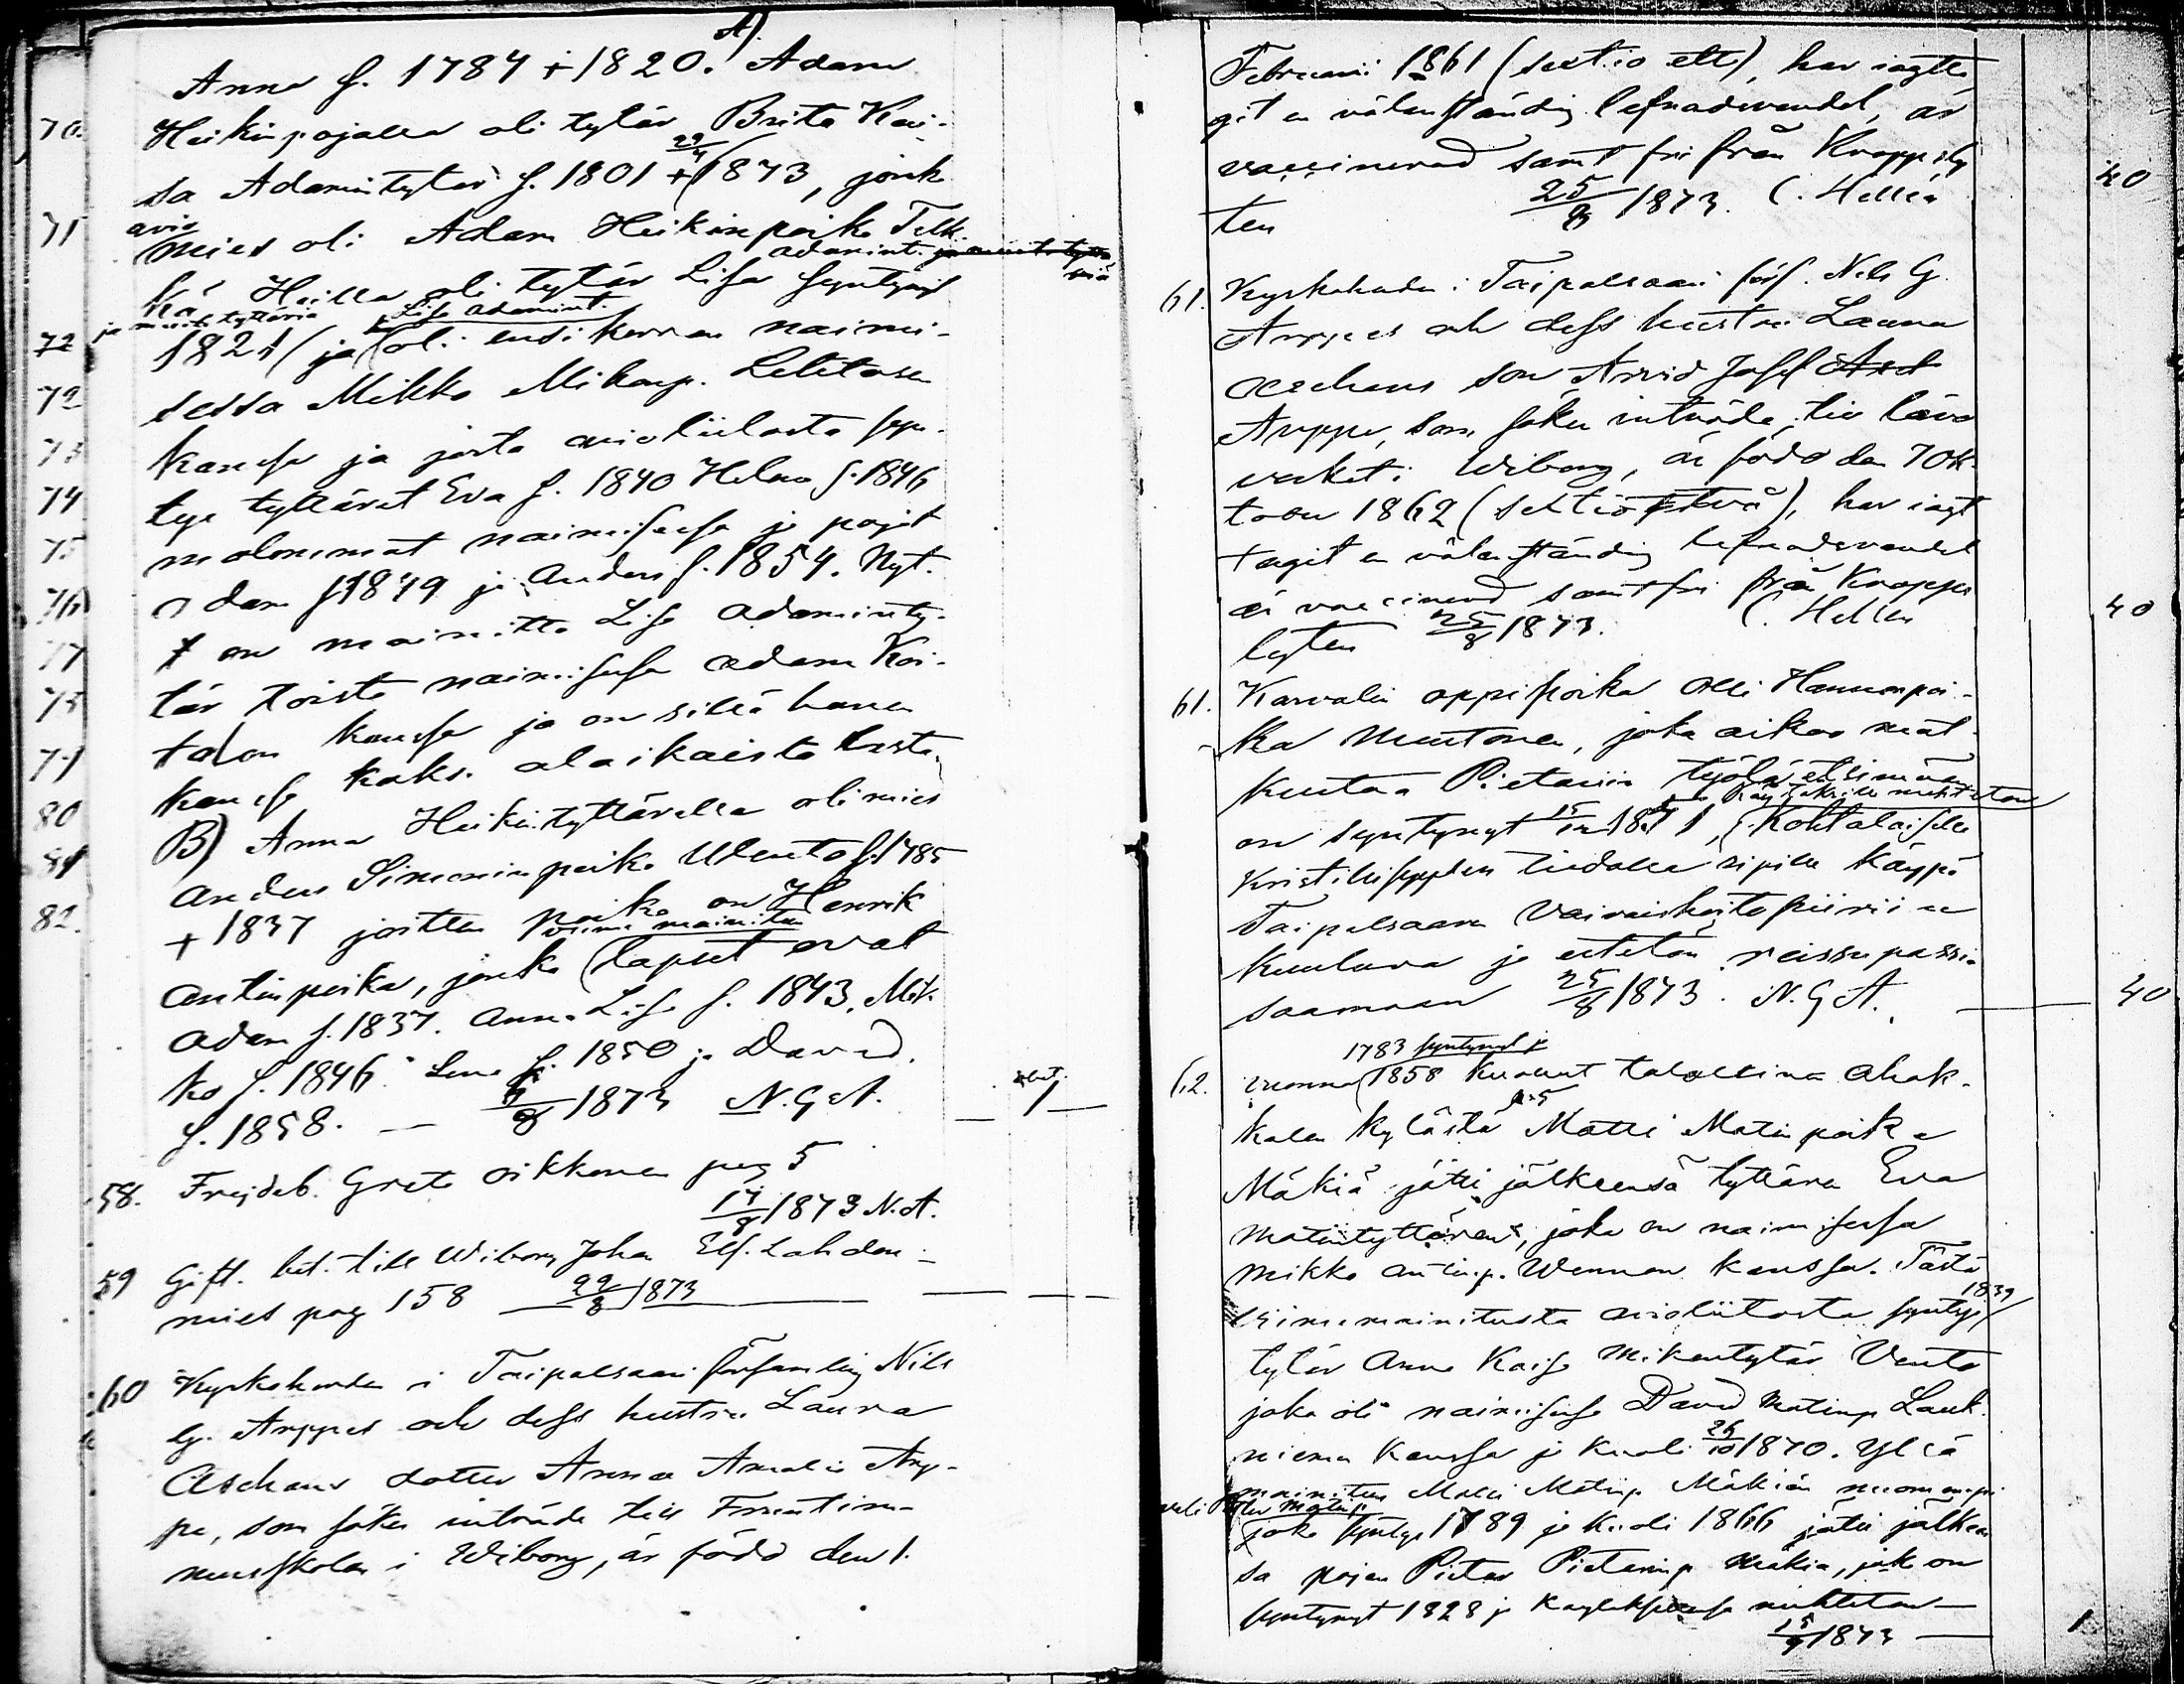 A).
Anna f. 1784 + 1820. Adam
70. Heikinpojalla oli tytär Brita Kai-
sa Adamintytär f. 1801 + 29/4 1873, jonk
71 avio
mies oli Adam Heikinpoika Telk-
adamint.
kä. Heillä oli tytär Lisa syntynyt
ja muita tyttäriä Lisa Adamint.
72 1821 (ja oli ensi kerran naimi-
72 sessa Mikko Mikonp. Lehtosen
73 kanssa ja josta avioliitosta syn-
74 tyi tyttäret Eva f. 1840 Helena f. 1846
75 molemmat naimisessa ja pojat
76 Adam f 1849 ja Anders f. 1854. Nyt.
77 on mainittu Lisa Adaminty-
78 tär toista naimisessa Adam Koi-
talon kanssa ja on sillä hänen
79 kanssa kaksi alaikäistä lasta.
80 B) Anna Heikintyttärellä oli mies
81 Anders Simoninpoika Utento f. 1785
82. + 1837 joitten poika on Henrik
viime mainitun
Antinpoika, jonka lapset ovat
Adam f. 1837. Anna Lisa f. 1843. Mik-
ko f. 1846. Lena f. 1850 ja David.
f. 1858. — /8 1873 N. G A. — 1 —
58. Frejdeb. Greta Oikkonen pag 5
14/8 1873 N. A.
59 Gift. bet. till Wiborg Johan Elf. Lahden-
mies pag 158 — 22/8 1873
60 Kyrkoherden i Taipalsaari församling Nils
G. Arppes och dess hustru Laura
Aschans dotter Anna Amalia Arp-
pe, som söker inträde till Fruntim-
mersskolan i Wiborg, är född den 1.
Februarii 1861 (sextio ett), har iagtta-
git en välanständig lefnadsvandel, är
vaccinerad samt fri från Kroppsly-
ten 25/8 1873. C. Hellén 40
61. Kyrkoherden i Taipalsaari förs. Nils G.
Arppes och dess hustru Laura
Aschans son Arvid Josef
Arppe, som söker inträde till läro
verket i Wiborg, är född den 7 Ok-
tober 1862 (sextiotvå), har iagt
tagit en välanständig lefnadsvandel
är vaccinerad samt fri från Kropps
lyten 25/8 1873. C. Hellén 40
61. Karvalin oppipoika Olli Hannonpoi-
ka Muutonen, joka aikoo mat-
kustaa Pietariin työtä etsimään
on syntynyt 1851, Kohtalaisella
Kristillisyyden tiedolla ripillä käypä
Taipalsaaren Vaivaishoitopiiriin
Kuuluva ja esteetön reissupassia
saamaan 25/8 1873. N. G A. — 40
1783 syntynyt ja
62. vuonna 1858 kuollut talollinen Ahok-
kalan kylästä Matti Matinpoika
Mäkiä jätti jälkeensä tyttären Eva
Matintyttären, joka on naimisessa
Mikko Antinp. Wennon kanssa. Tästä
1839
viimemainitusta avioliitosta syntyi
tytär Anna Kaisa Mikontytär Vento
joka oli naimisessa David Matinp Lauk-
niemen kanssa ja kuoli 26/10 1870. Yllä
mainitun Matti Matinp Mäkiän
veli Peter Matinp.
joka syntyi 1789 ja kuoli 1866 jätti jälkeen
sä pojan Pietar Pietarinp Mäkiä, joka on
syntynyt 1828 ja käytöksessä nuhteeton —
15/9 1873 — 1